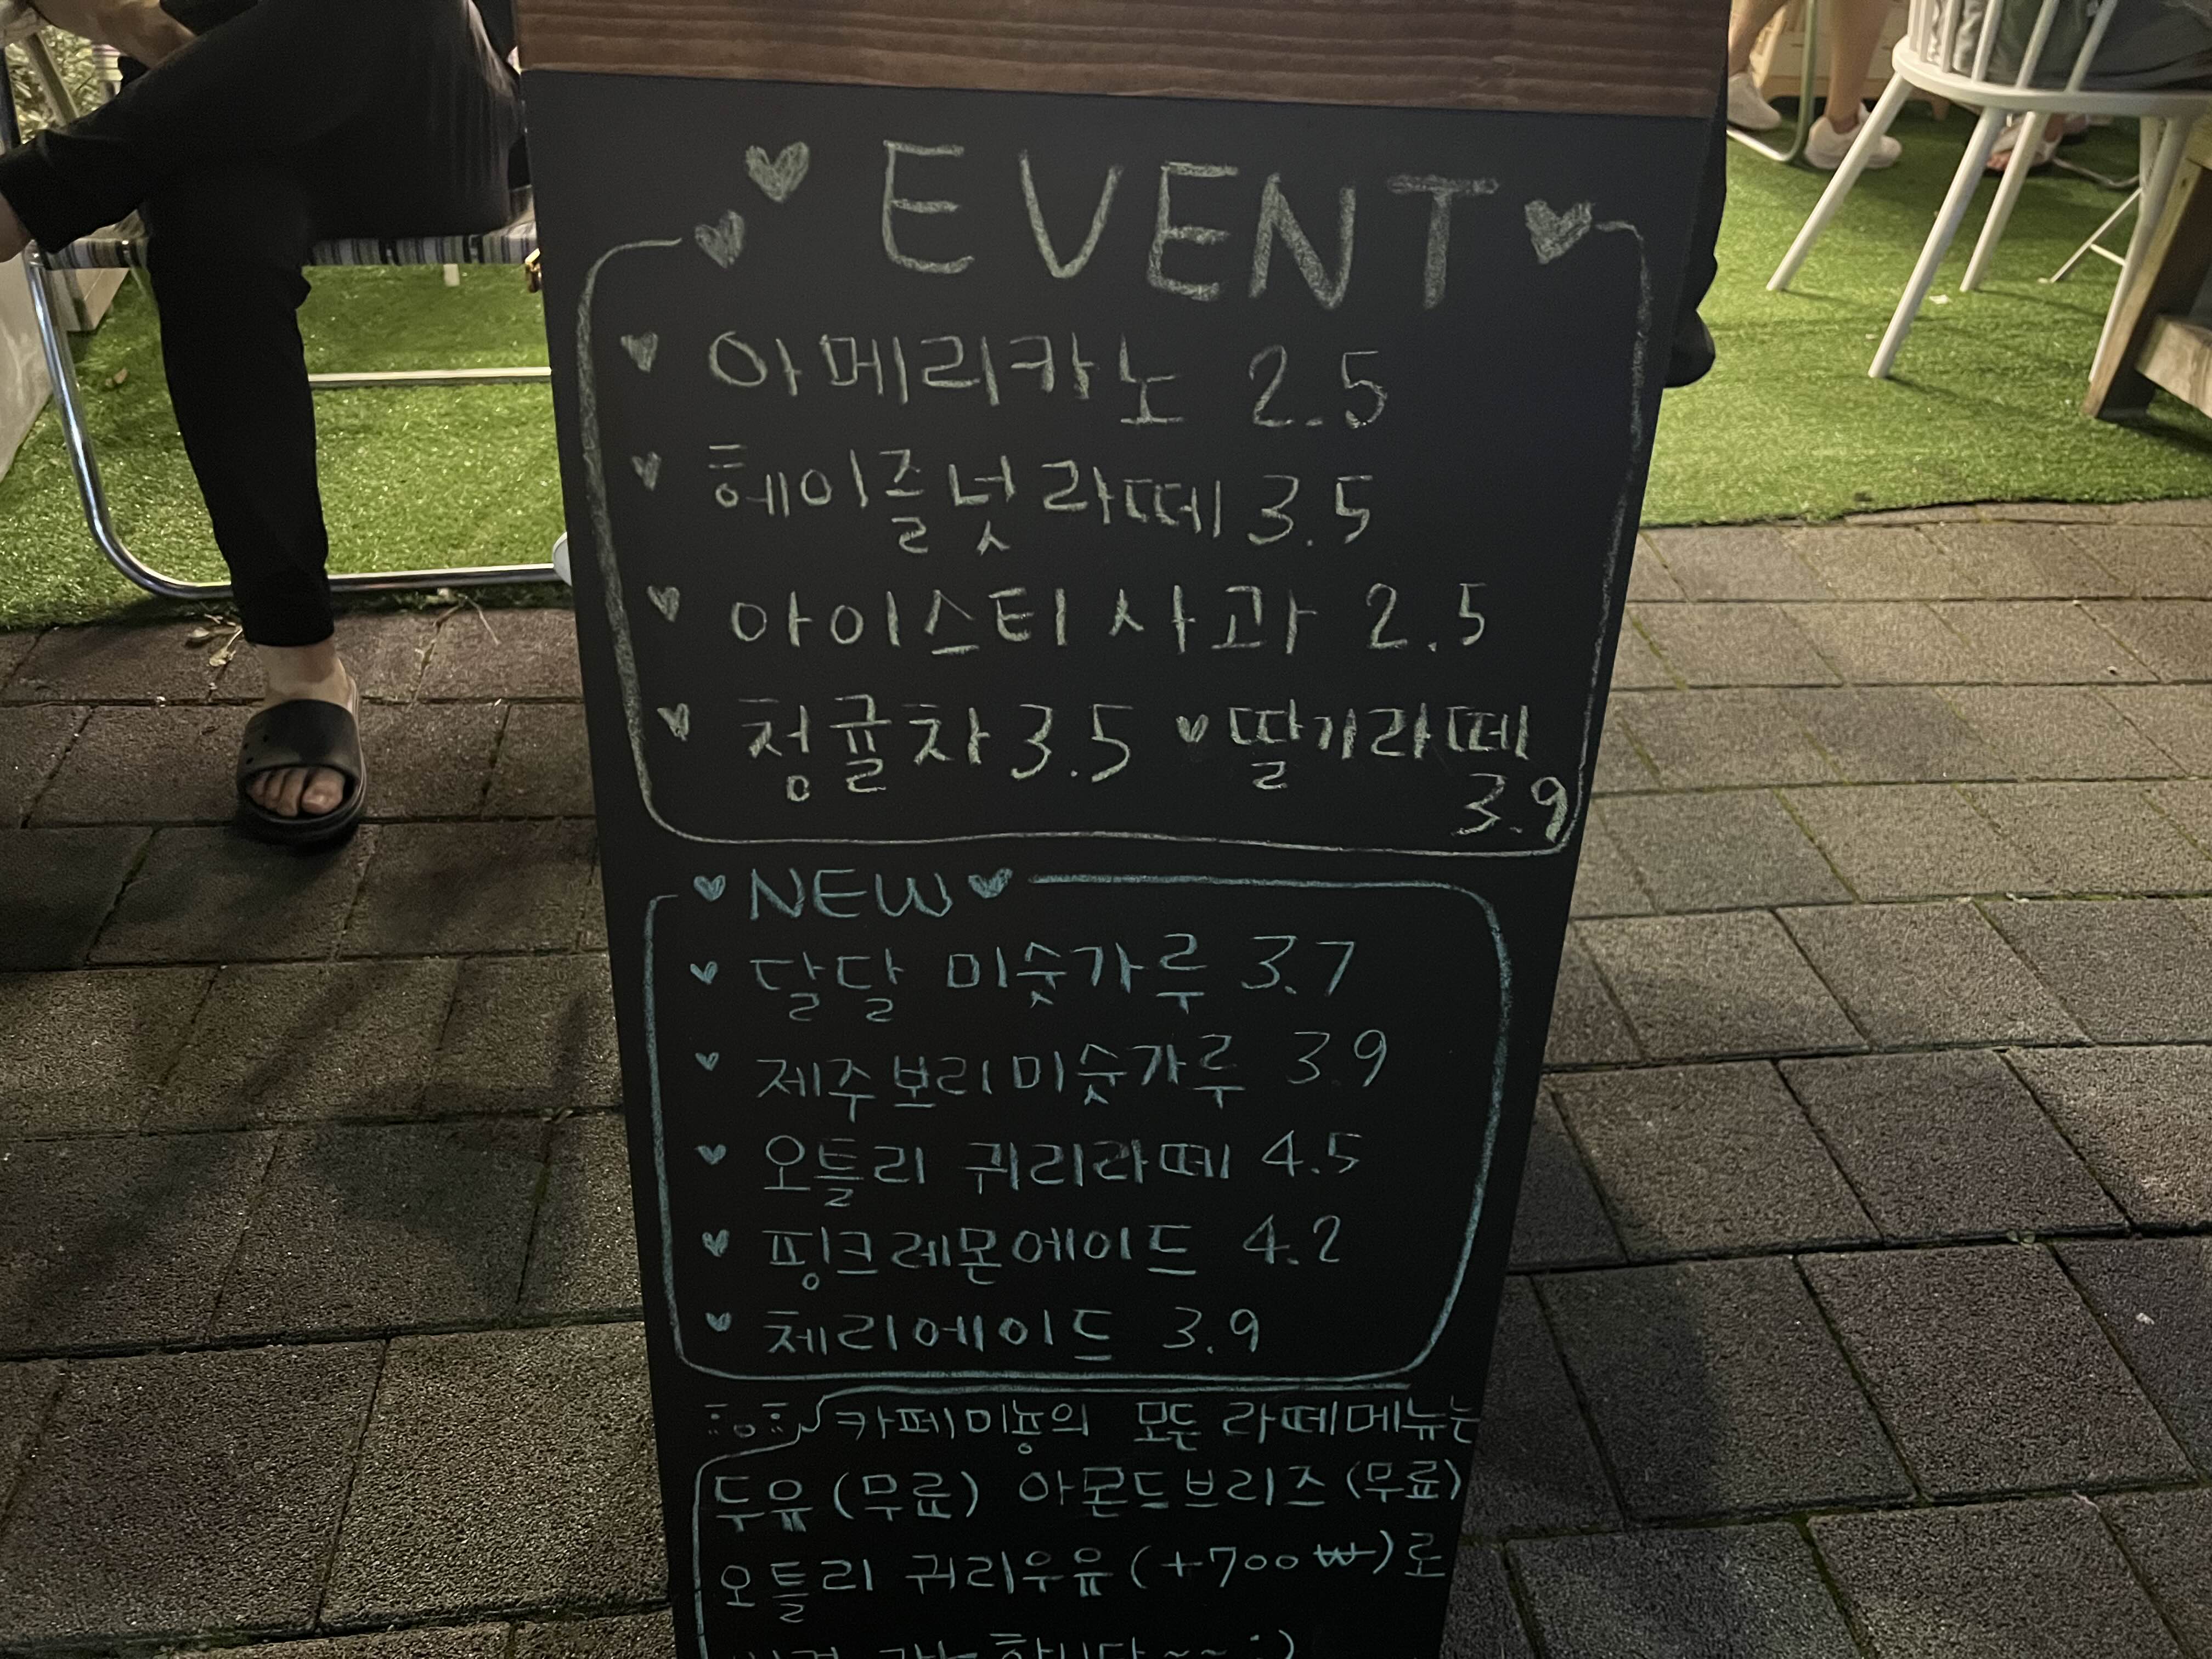 EVENT
아메리카노 2.5
헤이즐넛 라떼 3.5
아이스티 사과 2.5
청귤차 3.5 딸기라떼
3.9
NEW
달달 미숫가루 3.7
제주보리미숫가루 3.9
오틀리 귀리라떼 4.5
핑크레몬에이드 4.2
체리에이드 3.9
카페미뇽의 모든 라떼메뉴는
두유 (무료) 아몬드브리즈 (무료)
오틀리 귀리우유 (+700₩)로